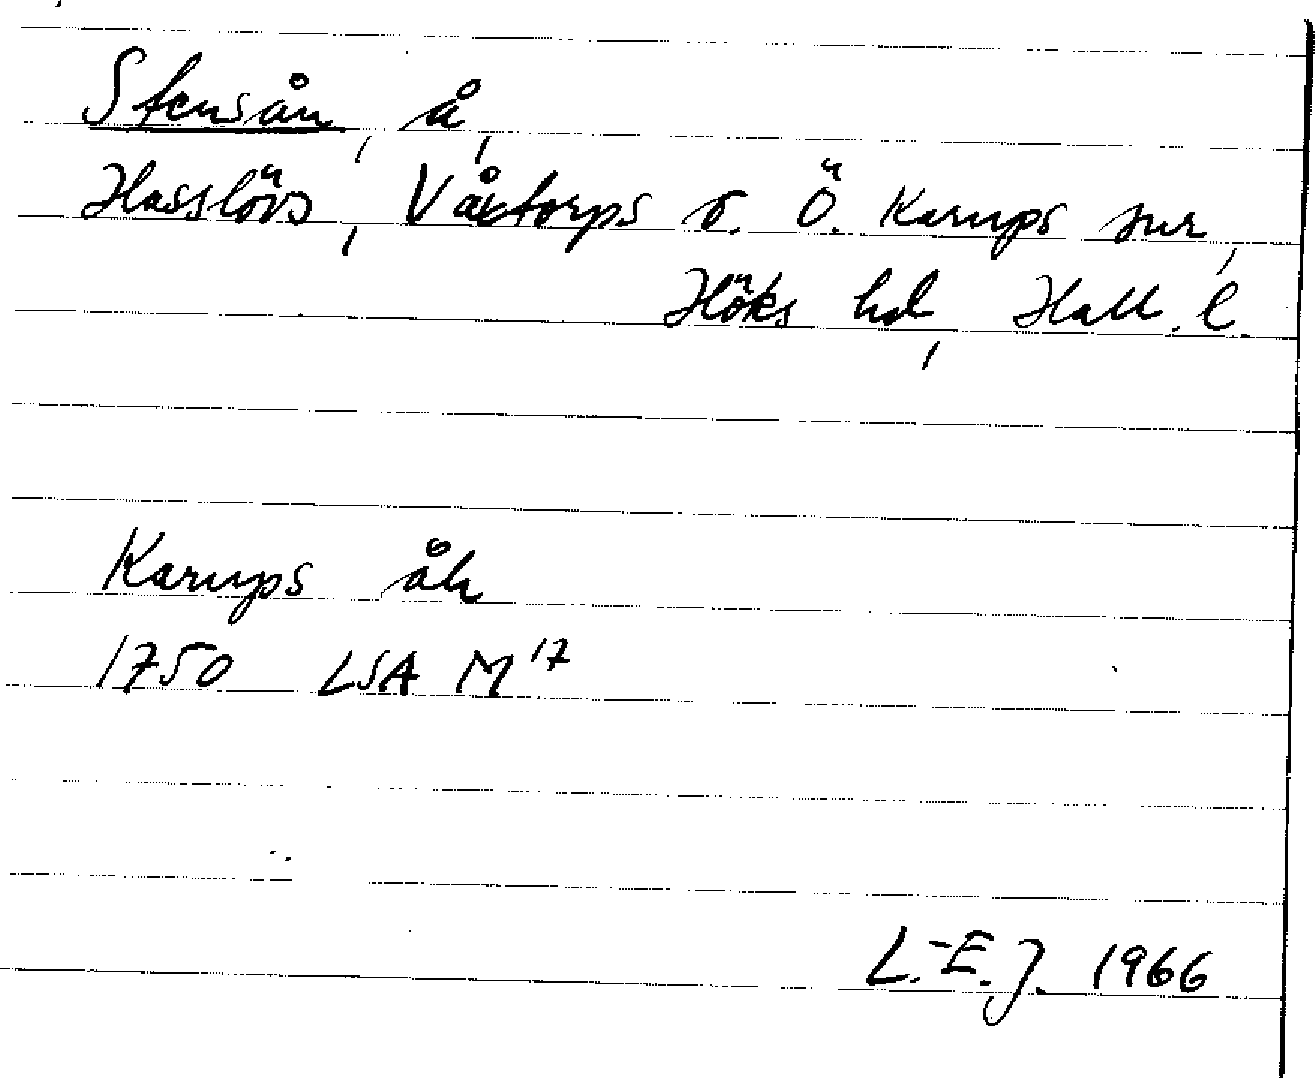 Stensån, å,
Hasslövs, Våxtorps o. Ö. Karups snr,
Höks hd, Hall. l.
Karups åh
1750 LSA M 17
L.-E. J. 1966